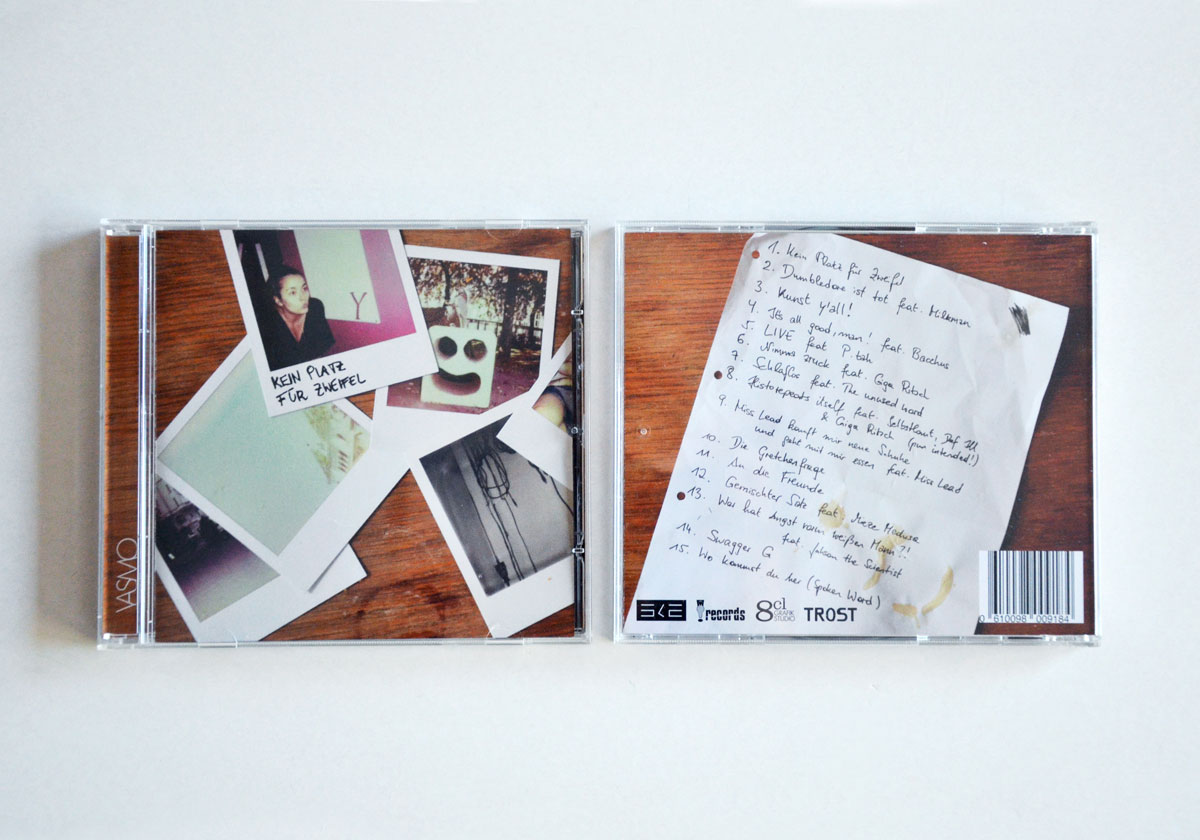 YASMO
Y
KEIN PLATZ
FÜR ZWEIFEL
1. Kein Platz für Zweifel
2. Dumbledore ist tot feat. Milkman
3. Kunst y'all!
4. It's all good, man! feat. Bacchus
5. LIVE feat P.tah
6. Nimma zruck feat. Giga Ritsch
7. Schlaflos feat. The unused word
8. Historepeats itself feat. Selbstlaut, Def Ill
& Giga Ritsch (pun intended!)
9. Miss Lead kauft mir neue Schuhe
und geht mit mir essen feat. Miss Lead
10. Die Gretchenfrage
11. An die Freunde
12. Gemischter Satz feat. Mieze Medusa
13. Wer hat Angst vorm weißen Mann?!
feat. Selsom the Scientist
14. Swagger G
15. Wo kommst du her (Spoken Word)
SKE
records
8cl
GRAFIK
STUDIO
TROST
0 610098 009184